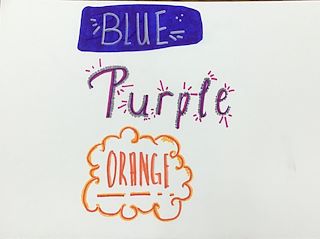 BLUE
Purple
ORANGE